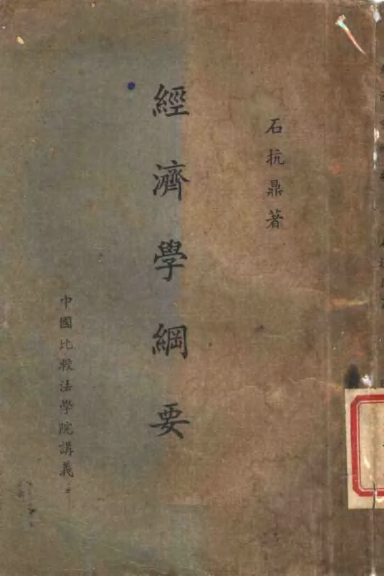 石抗鼎著
經濟學綱要
中國比較法學院講義